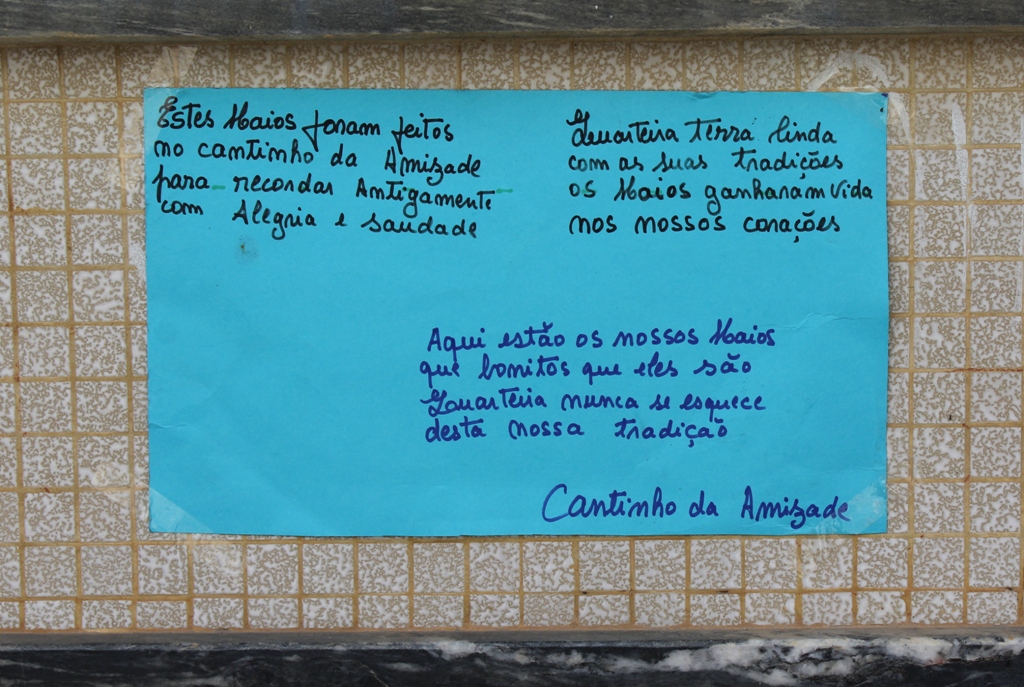 Estes Maios foram feitos
no cantinho da Amizade
para recordar Antigamente
com Alegria e saudade
Quarteira terra linda
com as suas tradições
os Maios ganharam vida
nos nossos corações
Aqui estão os nossos Maios
que bonitos que eles são
Quarteira nunca se esquece
desta nossa tradição
Cantinho da Amizade